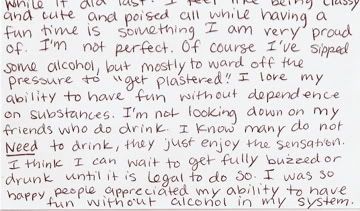 while it did last. I feel like being classy
and cute and poised all while having a
fun time is something I am very proud
of. I'm not perfect. Of course I've sipped
some alcohol, but mostly to ward off the
pressure to "get plastered". I love my
ability to have fun without dependence
on substances. I'm not looking down on my
friends who do drink. I know many do not
Need to drink, they just enjoy the sensation.
I think I can wait to get fully buzzed or
drunk until it is legal to do so. I was so
happy people appreciated my ability to have
fun without alcohol in my system.